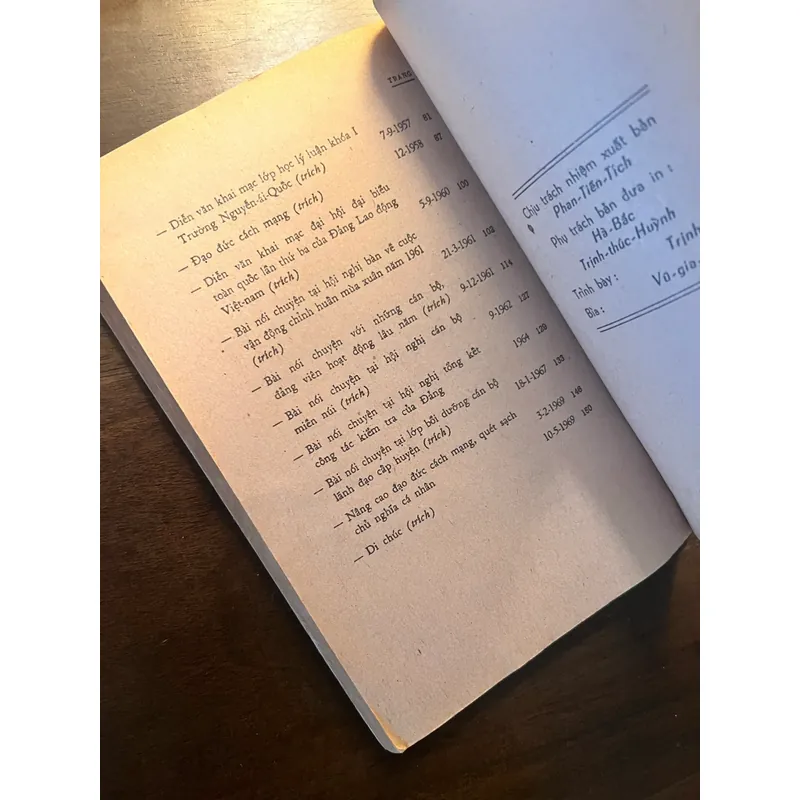 TRANG
— Diễn văn khai mạc lớp học lý luận khóa I
Trường Nguyễn-ái-Quốc (trích) 7-9-1957 81
— Đạo đức cách mạng (trích) 12-1958 87
— Diễn văn khai mạc đại hội đại biểu
toàn quốc lần thứ ba của Đảng Lao động
Việt-nam (trích) 5-9-1960 100
— Bài nói chuyện tại hội nghị bàn về cuộc
vận động chỉnh huấn mùa xuân năm 1961
(trích) 21-3-1961 102
— Bài nói chuyện với những cán bộ,
đảng viên hoạt động lâu năm (trích) 9-12-1961 114
— Bài nói chuyện tại hội nghị cán bộ
miền núi (trích) 9-1962 127
— Bài nói chuyện tại hội nghị tổng kết
công tác kiểm tra của Đảng 1964
— Bài nói chuyện tại lớp bồi dưỡng cán bộ
lãnh đạo cấp huyện (trích) 18-1-1967
— Nâng cao đạo đức cách mạng, quét sạch
chủ nghĩa cá nhân 3-2-1969 146
— Di chúc (trích) 10-5-1969 150
Chịu trách nhiệm xuất bản
Phan-Tiến-Tích
Phụ trách bản đưa in :
Hà-Bắc
Trịnh-thúc-Huỳnh
Trình bày : Trịnh
Bìa : Vũ-gia-